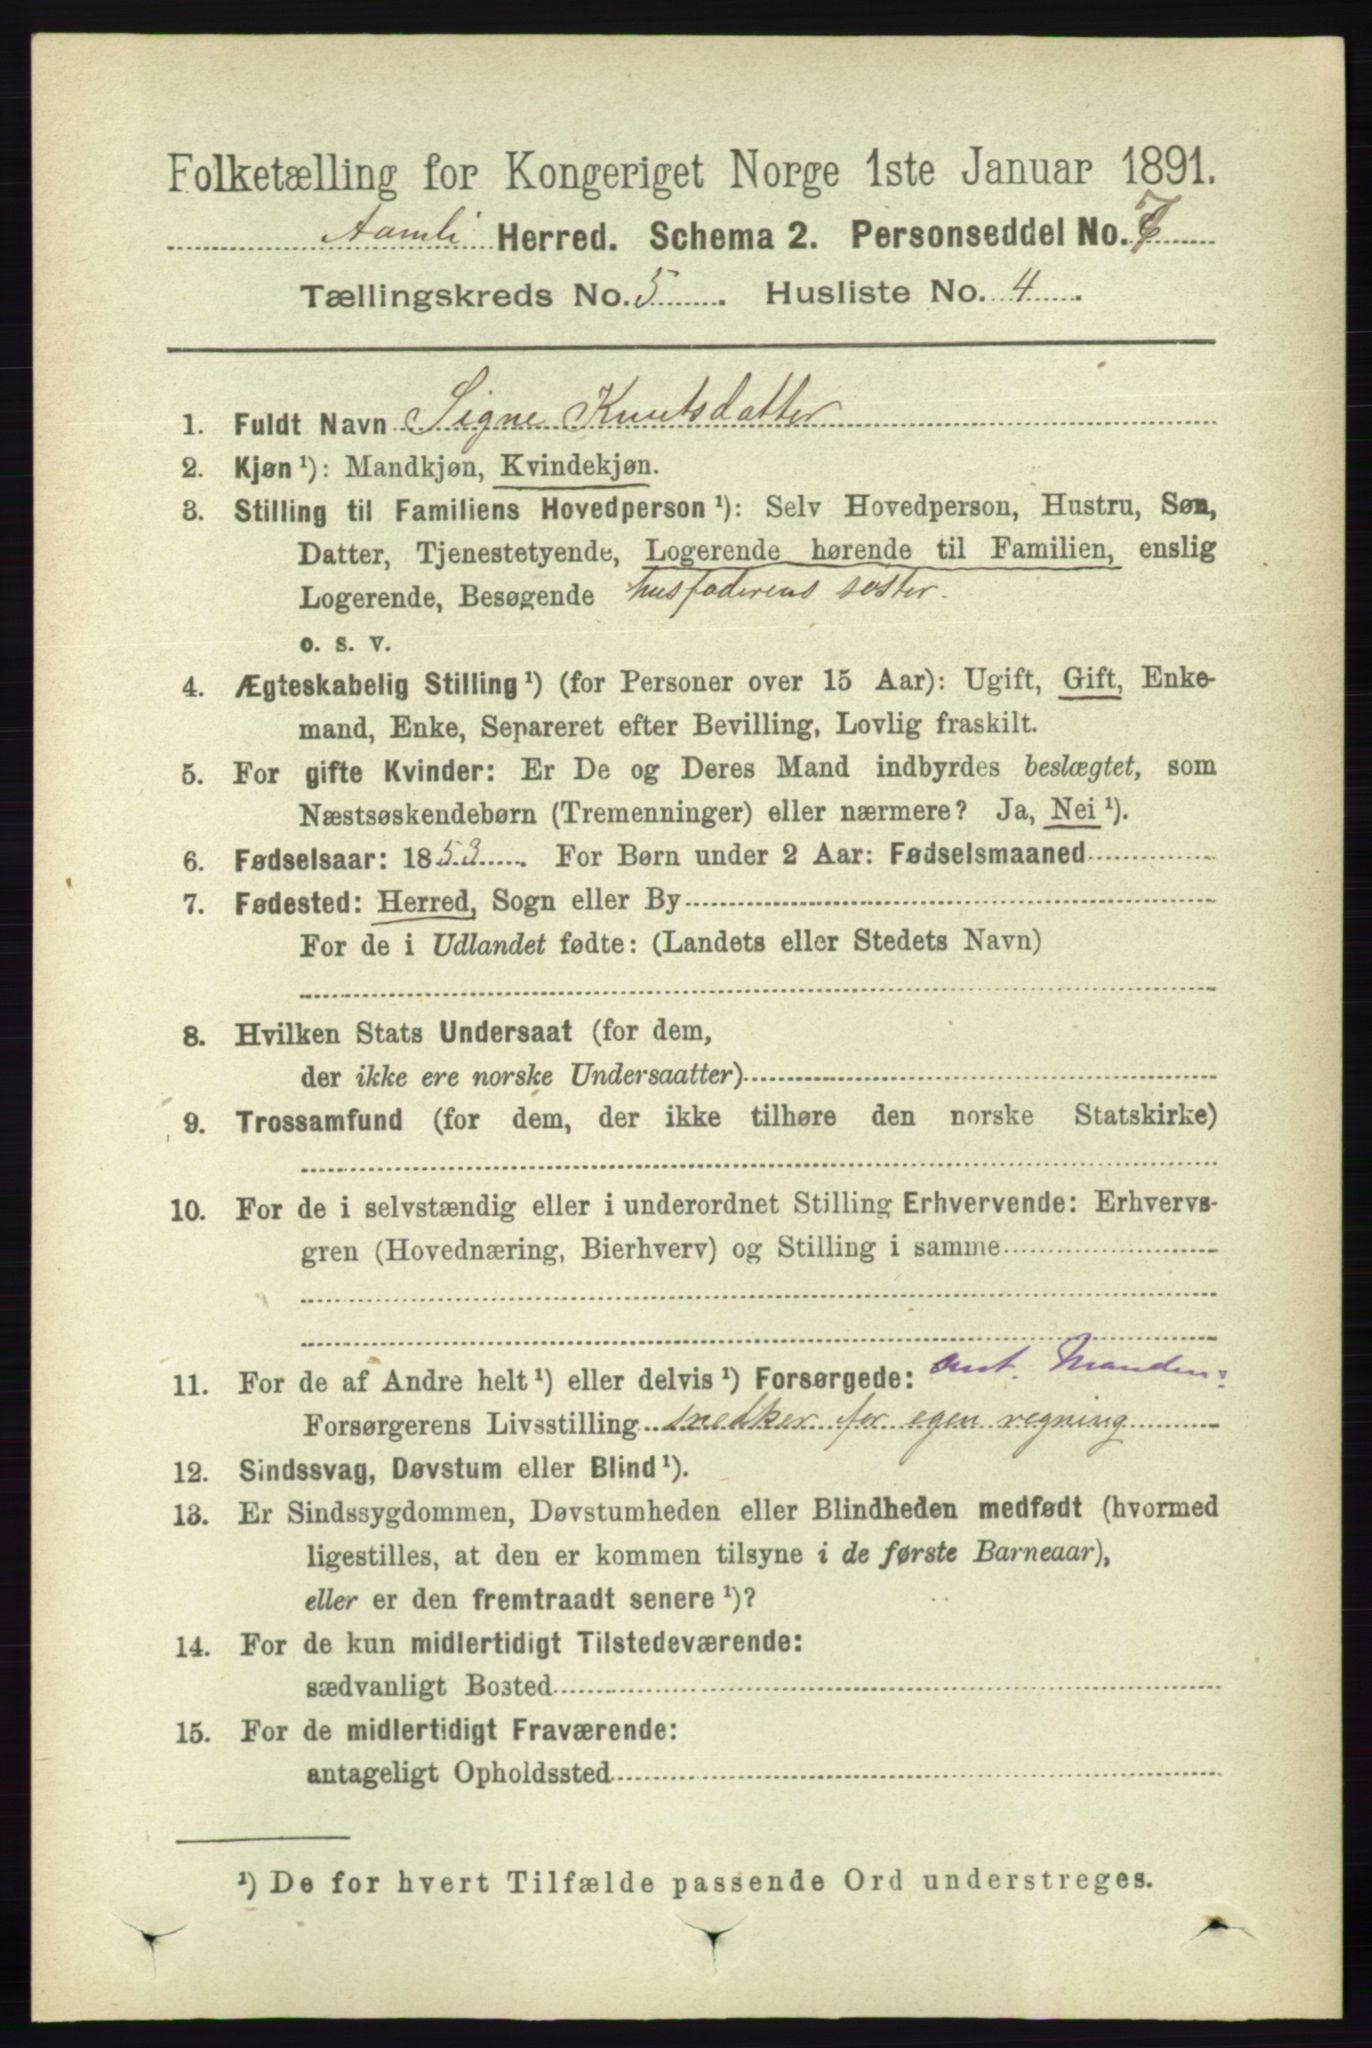 Folketælling for Kongeriget Norge 1ste Januar 1891.
Aamli Herred. Schema 2. Personseddel No. 7
Tællingskreds No. 5. Husliste No. 4.
1. Fuldt Navn Signe Knutsdatter
2. Kjøn ¹): Mandkjøn, Kvindekjøn.
3. Stilling til Familiens Hovedperson ¹): Selv Hovedperson, Hustru, Søn,
Datter, Tjenestetyende, Logerende hørende til Familien, enslig
Logerende, Besøgende husfaderens søster.
o. s. v.
4. Ægteskabelig Stilling ¹) (for Personer over 15 Aar): Ugift, Gift, Enke-
mand, Enke, Separeret efter Bevilling, Lovlig fraskilt.
5. For gifte Kvinder: Er De og Deres Mand indbyrdes beslægtet, som
Næstsøskendebørn (Tremenninger) eller nærmere? Ja, Nei ¹).
6. Fødselsaar: 1853. For Børn under 2 Aar: Fødselsmaaned
7. Fødested: Herred, Sogn eller By
For de i Udlandet fødte: (Landets eller Stedets Navn)
8. Hvilken Stats Undersaat (for dem,
der ikke ere norske Undersaatter)
9. Trossamfund (for dem, der ikke tilhøre den norske Statskirke)
10. For de i selvstændig eller i underordnet Stilling Erhvervende: Erhvervs-
gren (Hovednæring, Bierhverv) og Stilling i samme
11. For de af Andre helt ¹) eller delvis ¹) Forsørgede: Manden:
Forsørgerens Livsstilling snedker for egen regning
12. Sindssvag, Døvstum eller Blind ¹).
13. Er Sindssygdommen, Døvstumheden eller Blindheden medfødt (hvormed
ligestilles, at den er kommen tilsyne i de første Barneaar),
eller er den fremtraadt senere ¹)?
14. For de kun midlertidigt Tilstedeværende:
sædvanligt Bosted
15. For de midlertidigt Fraværende:
antageligt Opholdssted
¹) De for hvert Tilfælde passende Ord understreges.